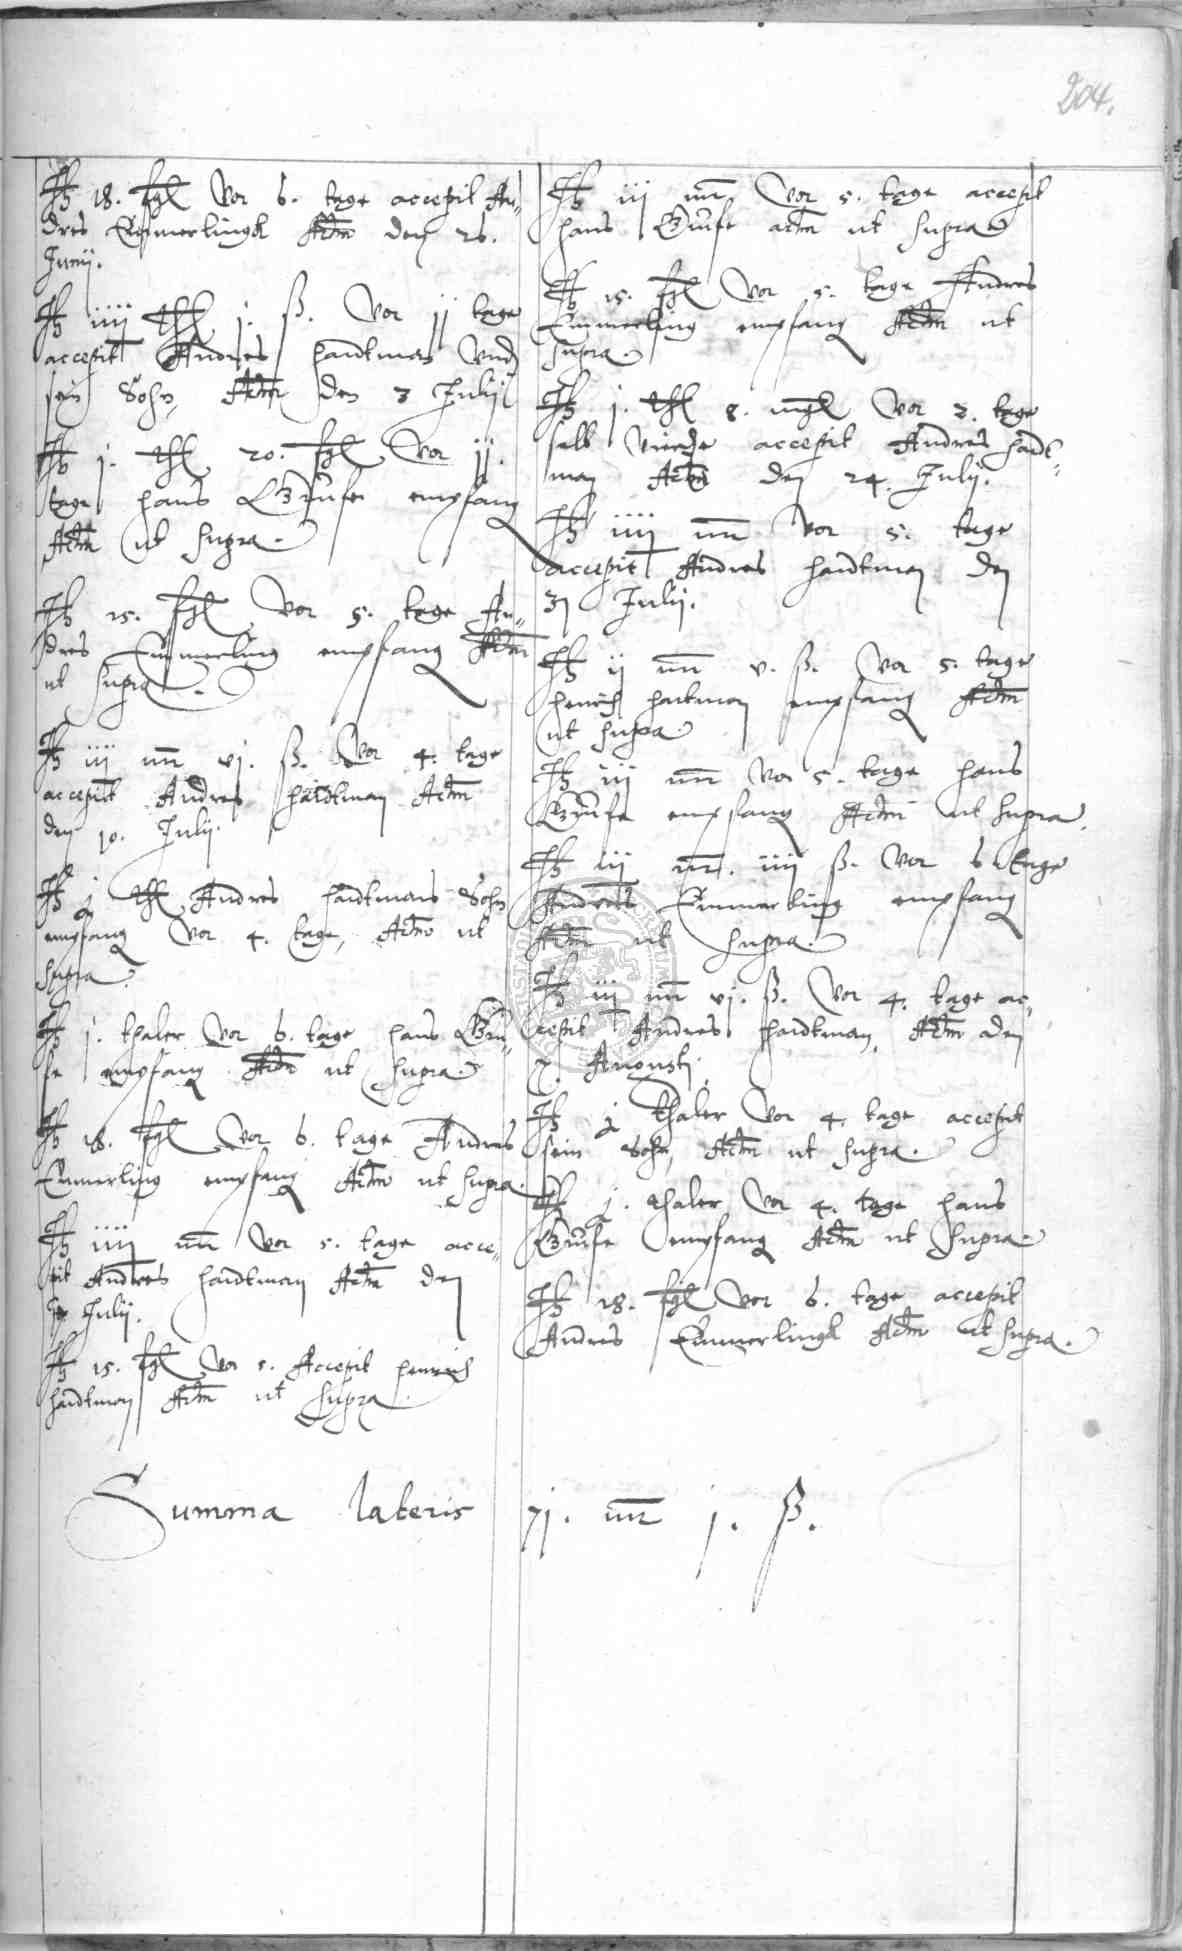 204.
It 18. fgl Vor 6. tage accepit An-
dres Emmerlingk Actm den 26.
Junij.
It iiij thl j. ß. Vor jj tage
accepit Andres Hardtman Vnd
sein Sohn, Actm den 3 Julij
It j. thl 20. fgl Vor jj.
tage Hans Gruse empfang
Actm ut supra.
It 15. fgl Vor 5. tage An-
dres Emmerling empfang Actm
ut supra.
It iij mr vj. ß. Vor 4. tage
accepit Andres Hardtman Actm
den 10. Julij.
It j thl Andres Hardtmans Sohn
empfang Vor 4. tage, Actm ut
supra.
It j. thaler Vor 6. tage Hans Gru-
se empfang Actm ut supra.
It 18. fgl Vor 6. tage Andres
Emerling empfang Actm ut supra.
It iiij mr Vor 5. tage acce-
pit Andres Hardtman Actm den
Julij.
It 15. fgl Vor 5. Accepit Henrich
Hardtman Actm ut supra.
It iij mr Vor 5. tage accepit
Hans Gruse actm ut supra
It 15. fgl Vor 5. tage Andres
Emmerling empfang Actm ut
supra.
It j. thl 8. mgl Vor 2. tage
selb Vierde accepit Andres Hardt-
man Actm den 24. Julij.
It iiij mr Vor 5. tage
accepit Andres Hardtman den
31 Julij.
It ij mr v. ß. Vor 5. tage
Henrich Hartman empfang Actm
ut supra.
It iij mr Vor 5. tage Hans
Gruse empfang Actm ut supra.
It iij mr. iiij ß. Vor 6 tage
Andres Emmerling empfang
Actm ut supra.
It iij mr vj. ß. Vor 4. tage ac-
cepit Andres Hardtman, Actm den
7. Augusti.
It j thaler Vor 4. tage accepit
sein Sohn, Actm ut supra.
It j. thaler Vor 4. tage Hans
Gruse empfang Actm ut supra.
It 18. fgl Vor 6. tage accepit
Andres Emmerlingk Actm ut supra.
Summa lateris 71. mr j. ß.